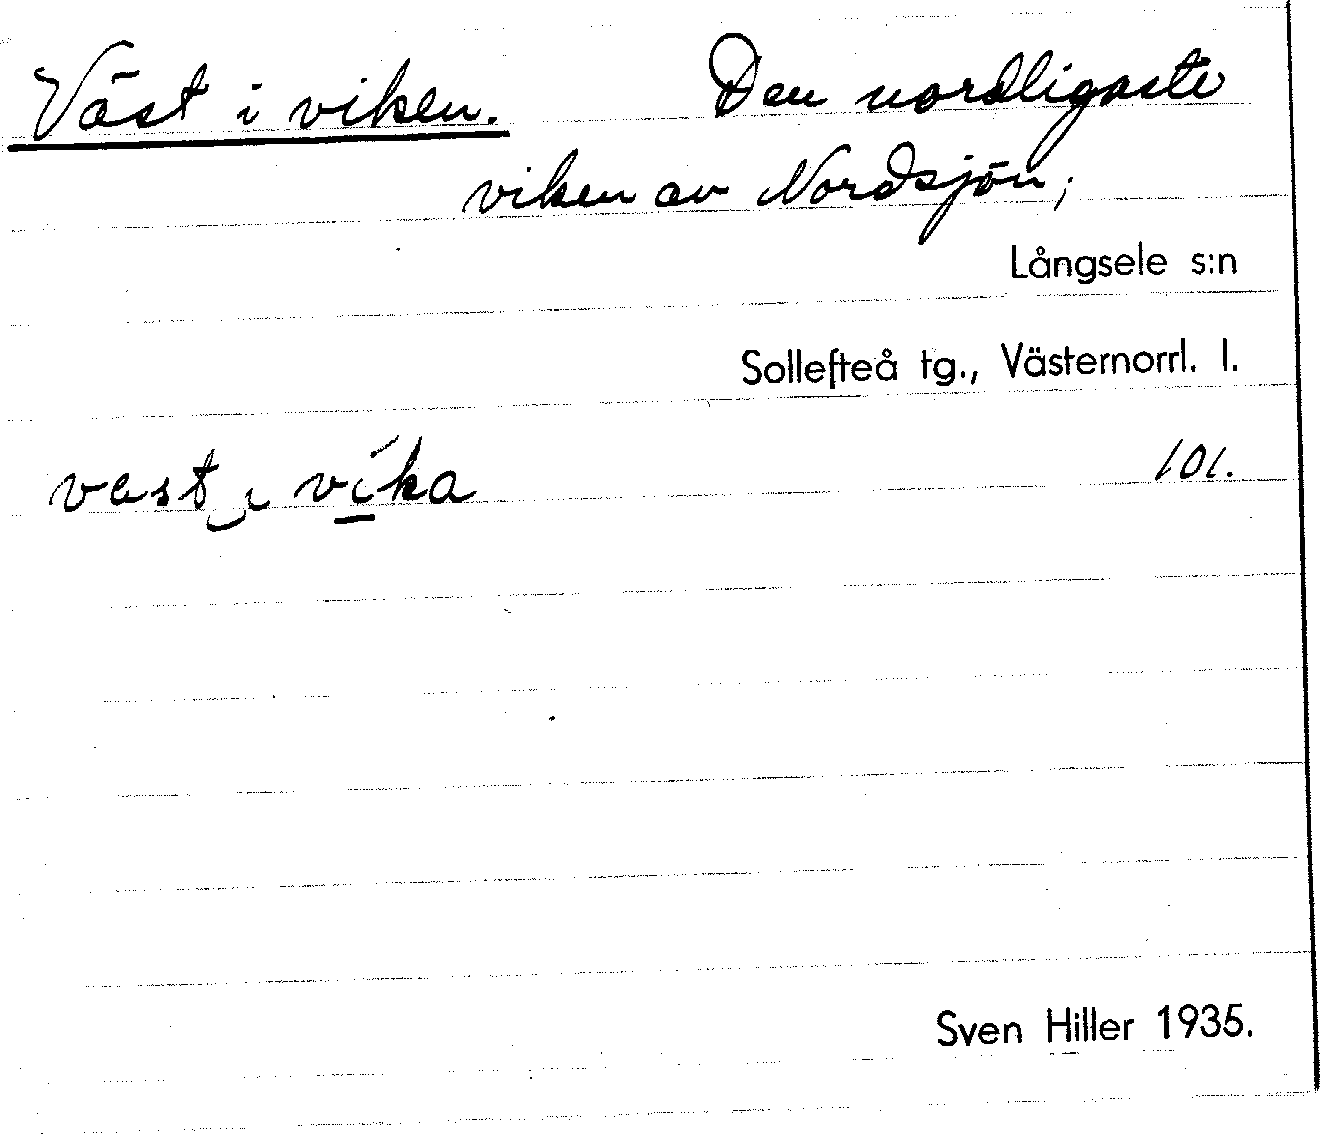 Väst i viken. Den nordligaste
viken av Nordsjön;
Långsele s:n
Sollefteå tg., Västernorrl. l.
vest‿ι víka 101.
Sven Hiller 1935.